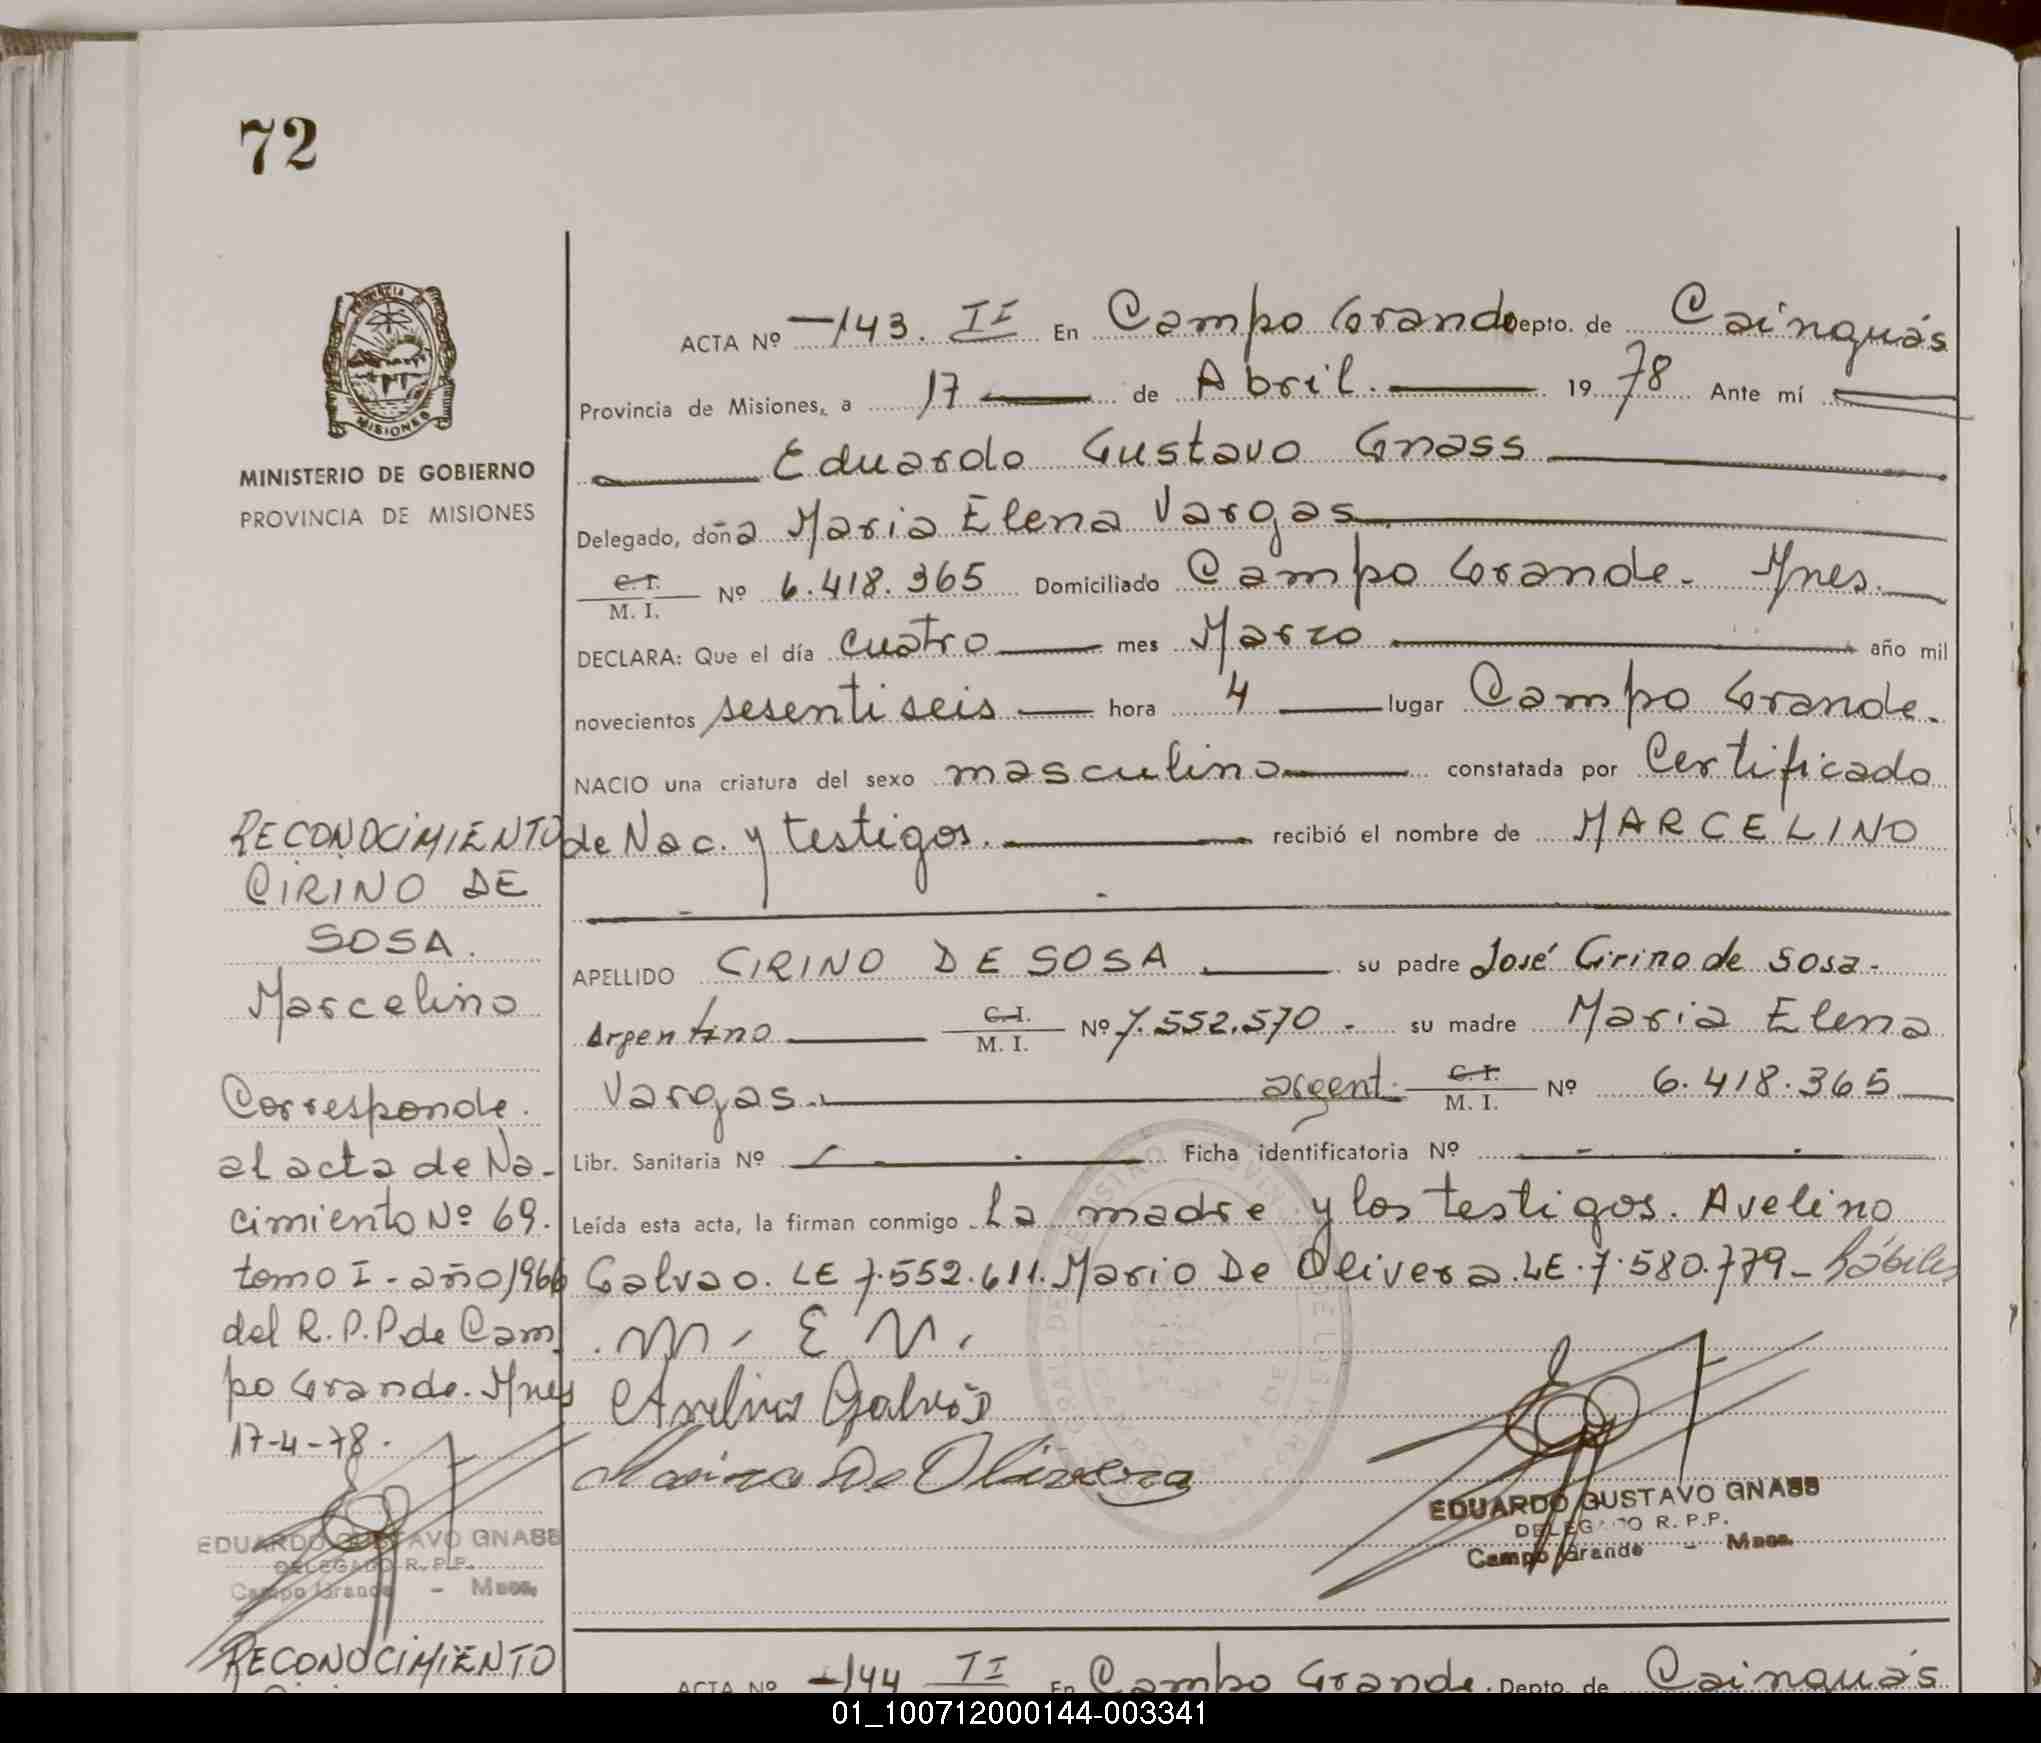 72
PROVINCIA DE
MISIONES
MINISTERIO DE GOBIERNO
PROVINCIA DE MISIONES
RECONOCIMIENTO
CIRINO DE
SOSA.
Marcelino
Corresponde.
al acta de Na-
cimiento Nº 69.
tomo I - año 1966
del R.P.P. de Cam
po Grande. Mnes
17-4-78.
EDUARDO GUSTAVO GNASS
DELEGADO R. P. P.
Campo Grande - Mnes.
RECONOCIMIENTO
ACTA Nº 143. II En Campo Grande Depto. de Cainguás
Provincia de Misiones, a 17 de Abril. 19 78 Ante mí
Eduardo Gustavo Gnass
Delegado, doña Maria Elena Vargas
C. I.
M. I. Nº 6.418.365 Domiciliado Campo Grande - Mnes.
DECLARA: Que el día cuatro mes Marzo año mil
novecientos sesenti seis hora 4 lugar Campo Grande.
NACIO una criatura del sexo masculino constatada por Certificado
de Nac. y testigos. recibió el nombre de MARCELINO
APELLIDO CIRINO DE SOSA su padre José Cirino de Sosa -
Argentino C. I.
M. I. Nº 7.552.570 - su madre Maria Elena
Vargas. argent. C. I.
M. I. Nº 6.418.365
Libr. Sanitaria Nº Ficha identificatoria Nº
Leída esta acta, la firman conmigo La madre y los testigos. Avelino
Galvao. LE 7.552.611. Mario De Olivera. LE. 7.580.779 - hábiles
M. E V.
Avelino Galvão
Mario De Olivera
EDUARDO GUSTAVO GNASS
DELEGADO R. P. P.
Campo Grande - Mnes.
ACTA Nº 144 II En Campo Grande. Depto. de Cainguás
01_100712000144-003341